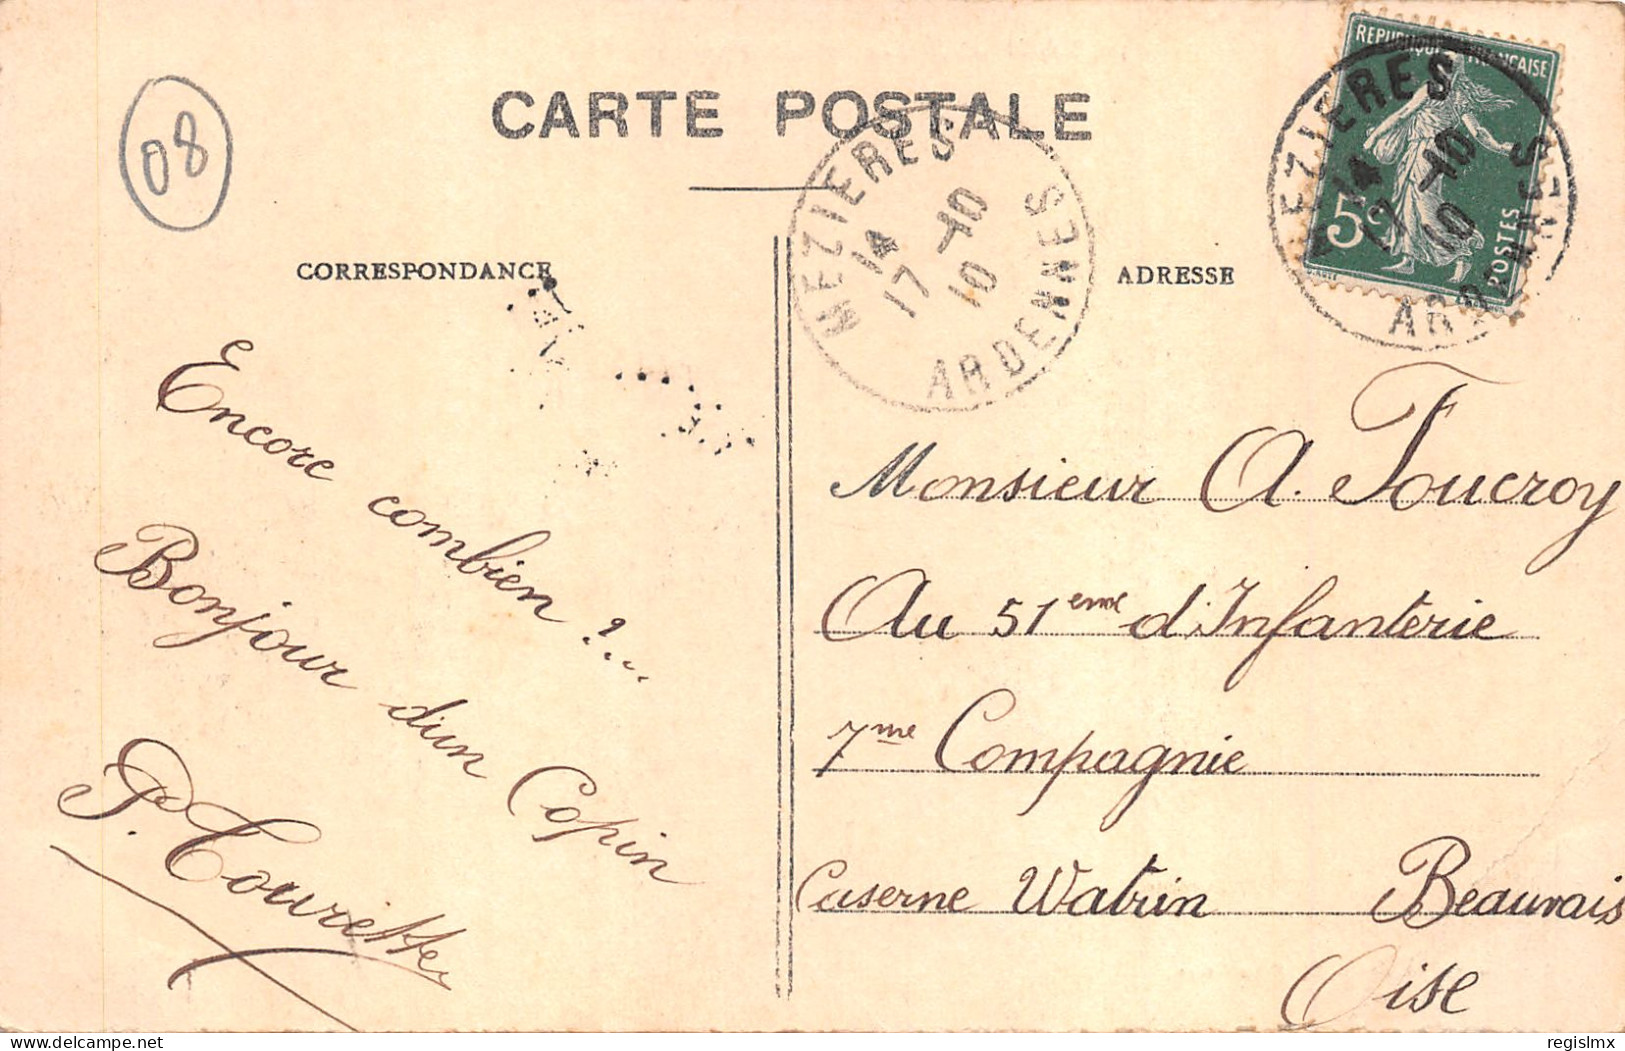 08
CARTE POSTALE
REPUBLIQUE FRANÇAISE
5c
POSTES
MEZIERES
14
17 -10
10
ARDENNES
MEZIERES
14
17 -10
10
ARDENNES
CORRESPONDANCE
ADRESSE
Encore combien ?...
Bonjour d'un Copin
P. Tourette
Monsieur A. Foucroy
Au 51eme d'Infanterie
7me Compagnie
Caserne Watrin Beauvais
Oise
delcampe.net
regislmx